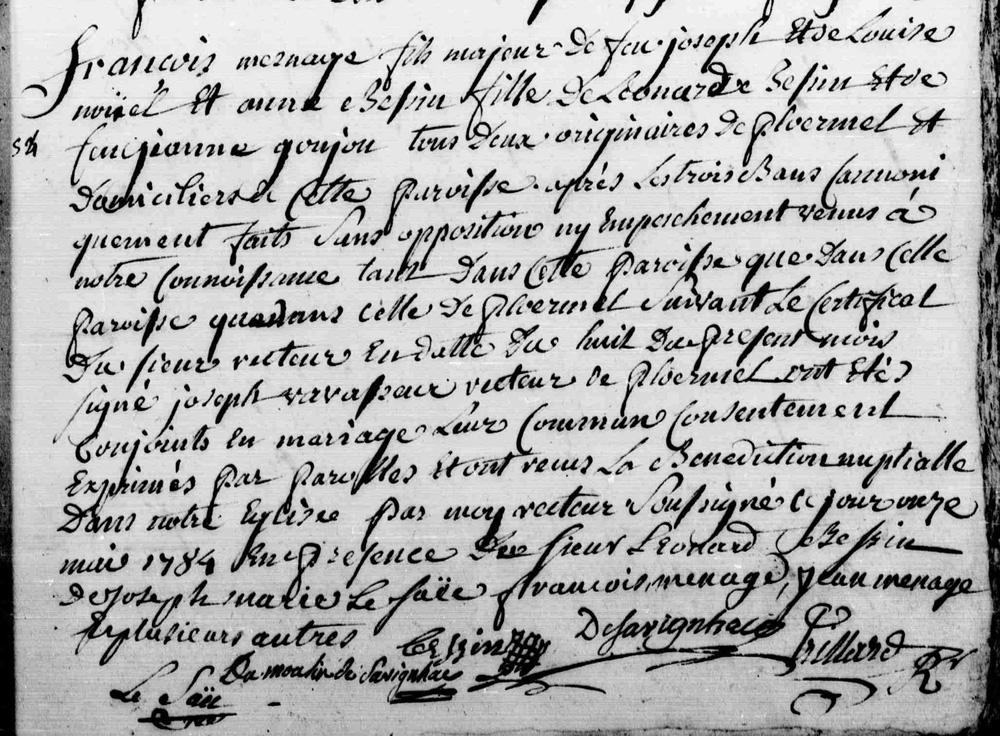 françois mesnage fils majeur de feu joseph et de Louise
noüel et anne Bessin fille de Leonard Bessin et de
feu jeanne goujon tous deux originaires de ploermel et
domiciliers de cette paroisse après les trois Bans cannoni
quement faits sans opposition ny Empeschement venus à
notre Connoissance tant dans cette paroisse que dans celle
paroisse que dans celle de ploermel suivant Le Certificat
du sieur recteur En datte du huit du present mois
signé joseph vavasseur recteur de ploermel ont Etés
Conjoints En mariage Leur Commun Consentement
Exprimés par parolles Et ont recus La Benediction nuptialle
Dans notre Eglise par moy recteur Soussigné ce jour onze
mai 1784 En presence du sieur Leonard Bessin
de joseph marie Le Saïe françois menage, jean menage
et plusieurs autres
Bessin DeSavignhac
Le Saïe Du moulin de Savignhac Rr